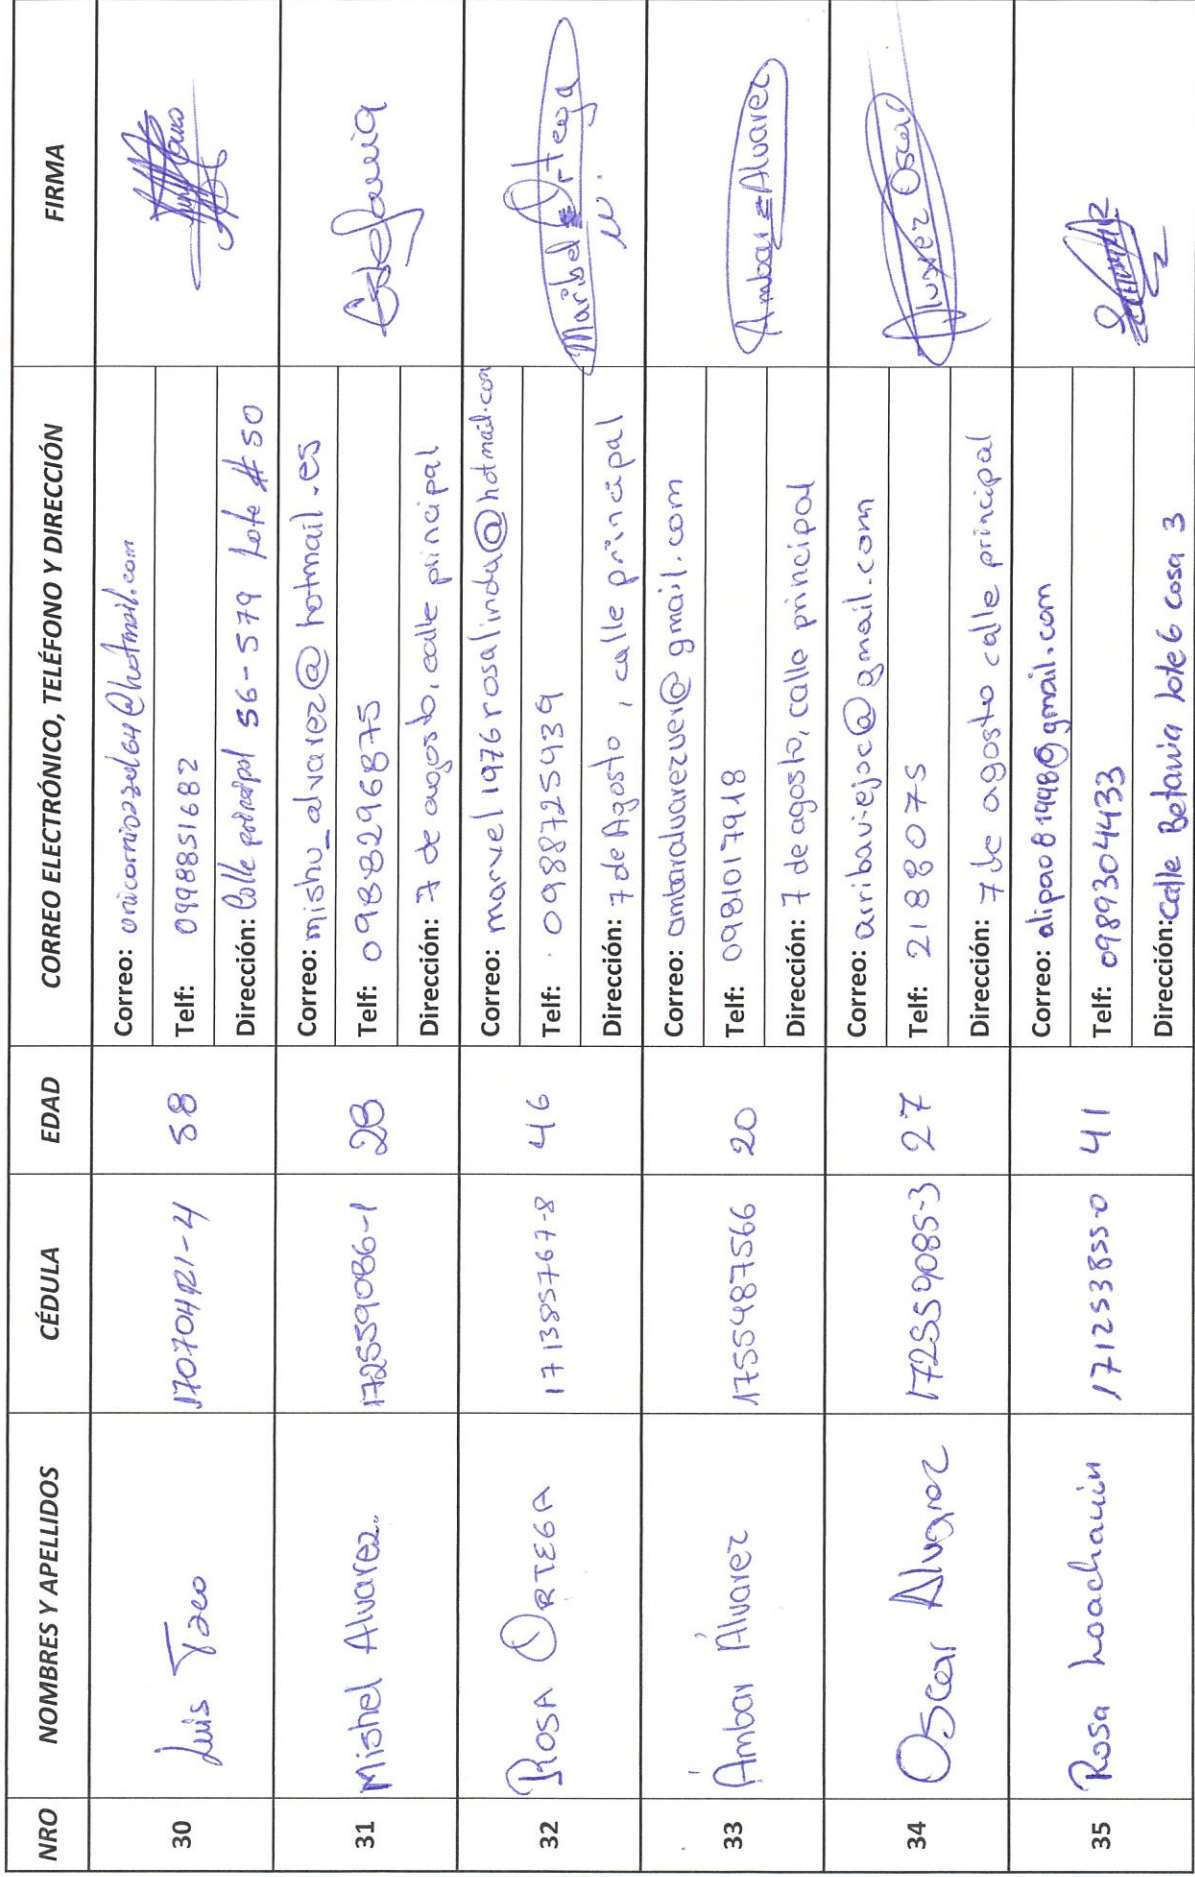 NRO NOMBRES Y APELLIDOS CÉDULA EDAD CORREO ELECTRÓNICO, TELÉFONO Y DIRECCIÓN FIRMA
30 Luis Taco 58
Correo:
Telf: 0998851682
Dirección: Calle principal S6-579 Lote #50
31 Mishel Alvarez. 172559086-1 28
Correo: mishu_alvarez@hotmail.es
Telf: 0988296875
Dirección: 7 de agosto, calle principal
Estefania
32 ROSA ORTEGA 171385767-8 46
Correo: marvel1976rosalinda@hotmail.com
Telf: 0988725939
Dirección: 7 de Agosto, calle principal
Maribel Ortega
33 Ámbar Álvarez 1755487566 20
Correo:
Telf: 0981017918
Dirección: 7 de agosto, calle principal
Ambar Alvarez
34 Oscar Alvarez 172559085-3 27
Correo: arribaviejoc@gmail.com
Telf: 2188075
Dirección: 7 de agosto calle principal
Alvarez Oscar
35 Rosa Loachamin 171253855-0 41
Correo:
Telf: 0989304433
Dirección: Calle Betania lote 6 casa 3